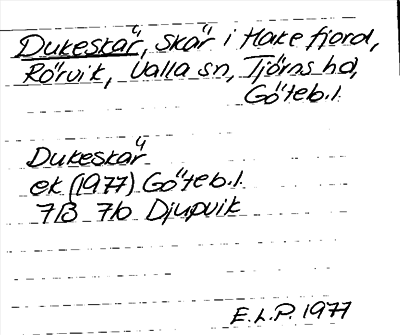 Dukeskär, skär i Hakefjord,
Rörvik, Valla sn, Tjörns hd,
Göteb.l.
Dukeskär
ek (1977) Göteb.l.
7B 7b Djupvik
E.L.P. 1977